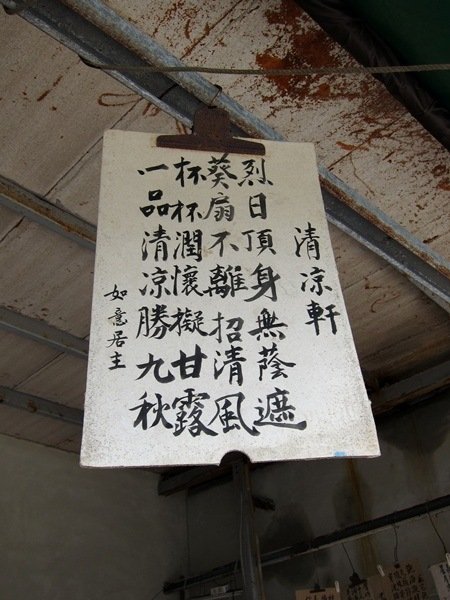 清涼軒
烈日頂身無蔭遮
葵扇不離招清風
杯杯潤懷擬甘露
一品清凉勝九秋
如意居主